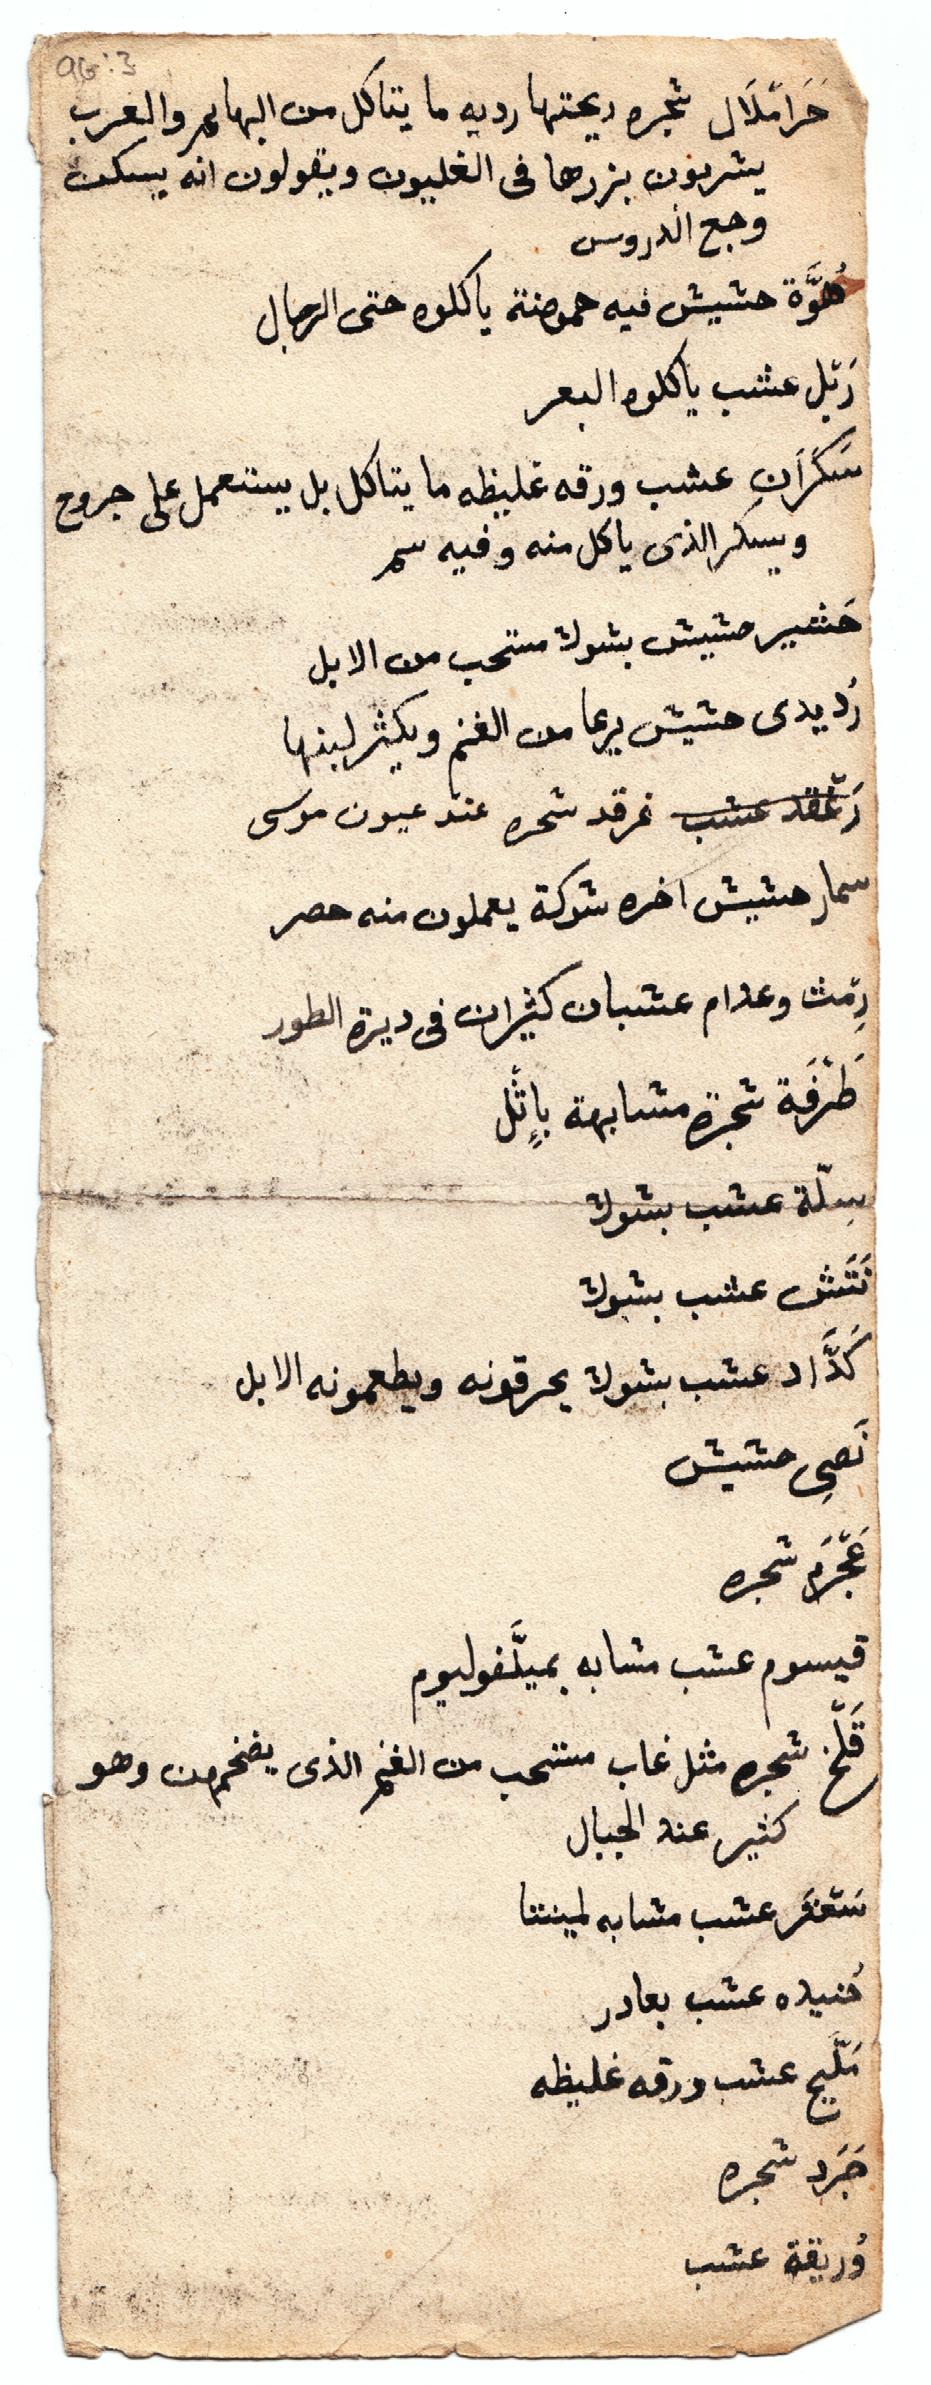 96:3
حَرامْلَال شجره ريحتها رديه ما يتاكل من البهايم والعرب
يشربون بزرها فى الغليون ويقولون انه يسكت
وجع الدروس
هُوَّة حشيش فيه حموضة ياكلوه حتى الرجال
رَبْل عشب ياكلوه البعر
سَكَرَانِ عشب ورقه غليظه ما يتاكل بل يستعمل على جروح
ويسكر الذى ياكل منه وفيه سم
خَشير حشيش بشوك مستحب من الابل
رُديدى حشيش يرعا من الغنم ويكثر لبنها
عشب غرقد شجره عند عيون موسى
سمار حشيش اخره شوكة يعملون منه حصر
رِمْث وعدام عشبان كثيران فى ديرة الطور
طَرْفَة شجرة مشابهة بإثْل
سِلّة عشب بشوك
نَتَش عشب بشوك
كَدَّاد عشب بشوك يحرقونه ويطعمونه الابل
نَصِى حشيش
عَجْرَم شجره
قيسوم عشب مشابه بميلَّفوليوم
قَلْخ شجره مثل غاب مستحب من الغنم الذى يضخمهن وهو
كثير عند الجبال
عشب مشابه لمينتا
عشب بعادر
مَلَّيح عشب ورقه غليظه
جَرَد شجره
وُريقة عشب